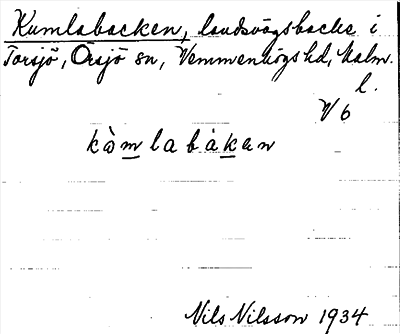 Kumlabacken, landsvägsbacke i
Torsjö, Örsjö sn, Vemmenhögs hd, Malm.
l.
V 6
kòmlabàkan
Nils Nilsson 1934